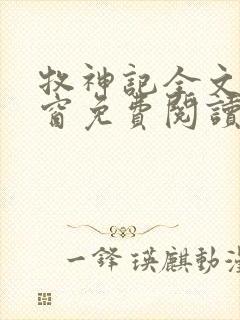 牧神記全文
窗免費閱讀
一鋒瑛麒動漫